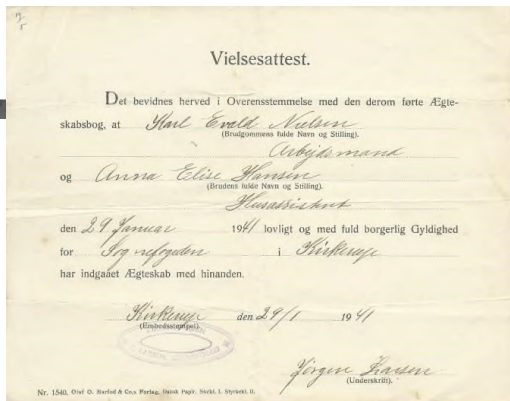 Vielsesattest.
Det bevidnes herved i Overensstemmelse med den derom førte Ægte-
skabsbog, at Karl Evald Nielsen
(Brudgommens fulde Navn og Stilling).
Arbejdsmand
og Anna Elise Hansen
(Brudens fulde Navn og Stilling).
Husassistent
den 29 Januar 1941 lovligt og med fuld borgerlig Gyldighed
for Sognefogden i Kirkerup
har indgaaet Ægteskab med hinanden.
Kirkerup den 29/1 1941
(Embedsstempel).
Jørgen Larsen
(Underskrift).
Nr. 1540. Olaf O. Barfod & Co.s Forlag. Dansk Papir. Stofkl. I. Styrkekl. II.